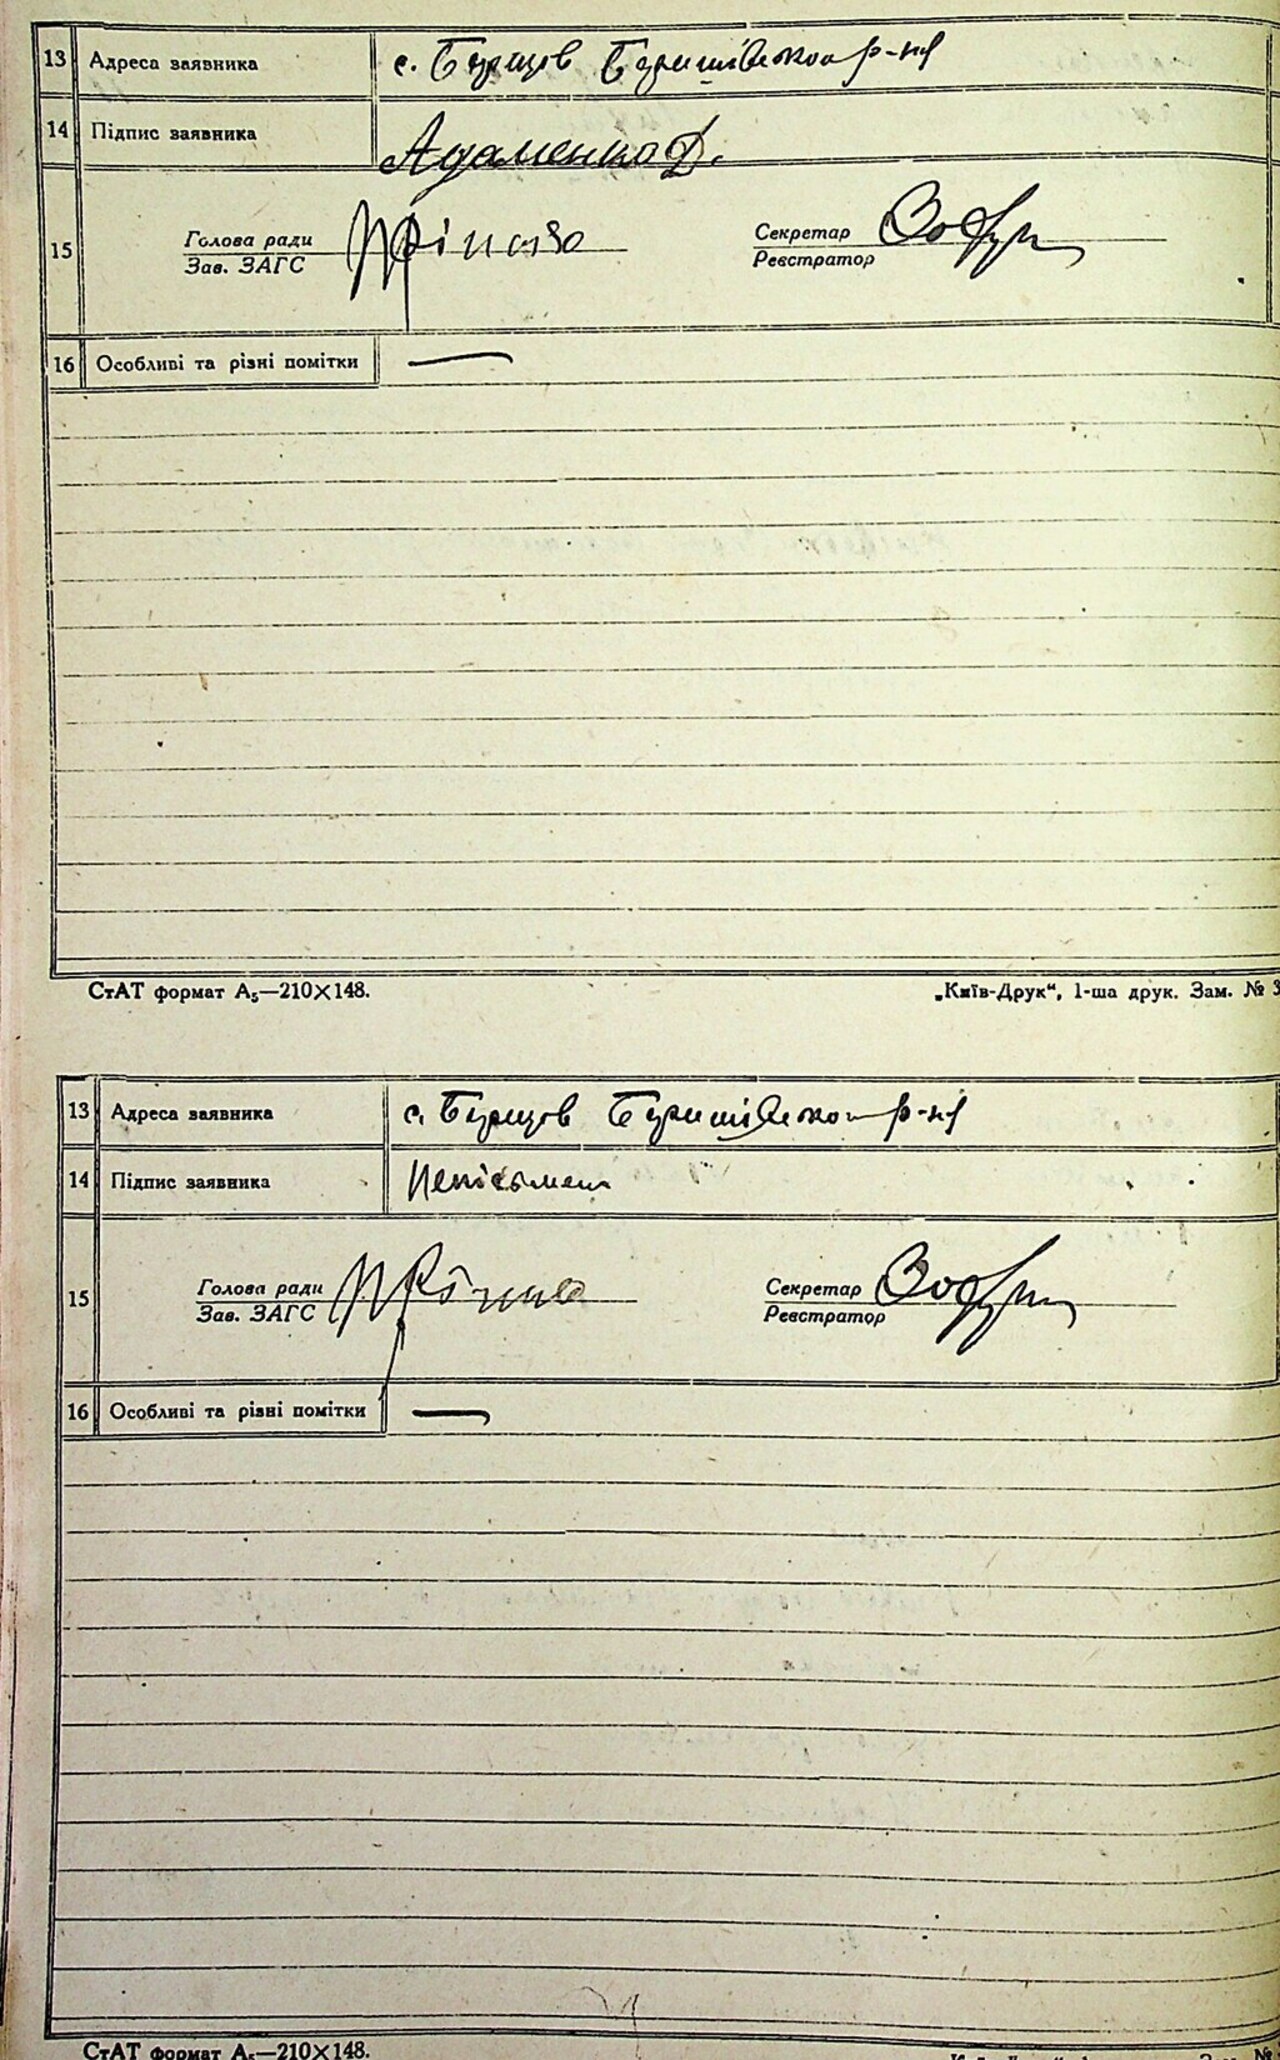 13 Адреса заявника с. Борщов Баришівського р-ну
14 Підпис заявника Адаменко Д.
15 Голова ради Секретар
Зав. ЗАГС Реєстратор
16 Особливі та різні помітки —
СтАТ формат А₅—210×148. „Київ-Друк“, 1-ша друк. Зам. № 3
13 Адреса заявника с. Борщов Баришівського р-ну
14 Підпис заявника Неписьмен
15 Голова ради Секретар
Зав. ЗАГС Реєстратор
16 Особливі та різні помітки —
СтАТ формат А₅—210×148.